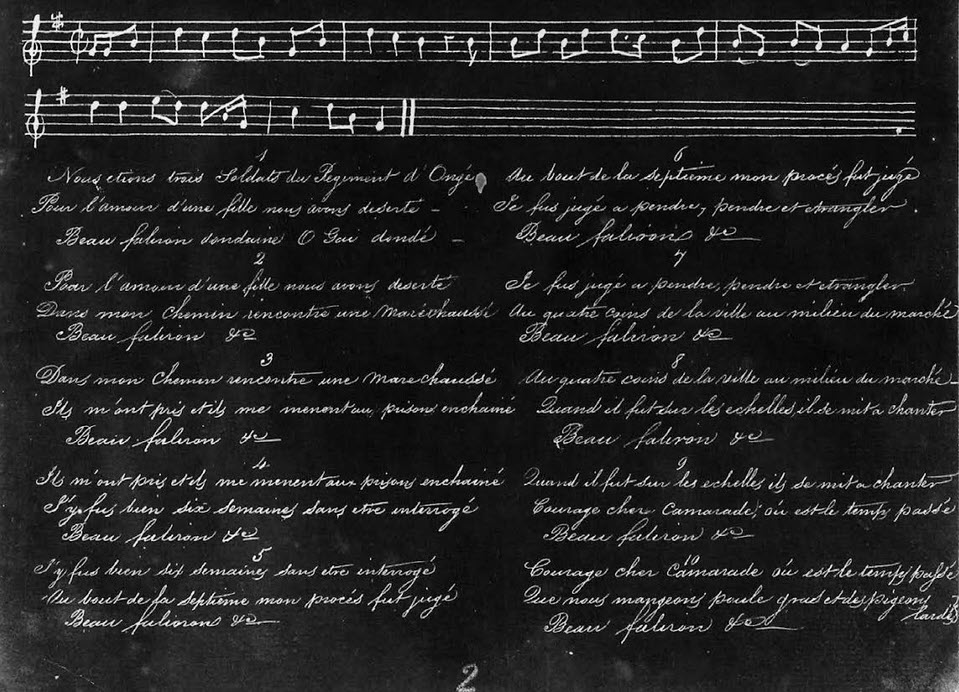 1
Nous etions trois Soldats du Regiment d'Ongé
Pour l'amour d'une fille nous avons deserté –
Beau faliron dondaine O Gai dondé –
2
Pour l'amour d'une fille nous avons deserté
Dans mon Chemin rencontre une Maréchaussé
Beau faliron &c
3
Dans mon Chemin rencontre une Marechaussé
Ils m'ont pris et ils me menent au prison enchainé
Beau faliron &c
4
Ils m'ont pris et ils me menent aux prisons enchainé
J'y fus bien six semaines sans etre interrogé
Beau faliron &c
5
J'y fus bien six semaines sans etre interrogé
Au bout de la septieme mon procés fut jugé
Beau falioron &c
6
Au bout de la septieme mon procés fut jugé
Je fus jugé a pendre, pendre et etrangler
Beau falioon &c
7
Je fus jugé a pendre, pendre et etrangler
Au quatre coins de la ville au milieu du marché
Beau faliron &c
8
Au quatre coins de la ville au milieu du marché –
Quand il fut sur les echelles, il se mit a chanter
Beau faliron &c
9
Quand il fut sur les echelles ils se mit a chanter
Courage cher Camarade, ou est le temps passé
Beau faliron &c
10
Courage cher Camarade où est le temps passé
Que nous mangeons poule gras et des pigeons lardés
Beau faliron &c
2